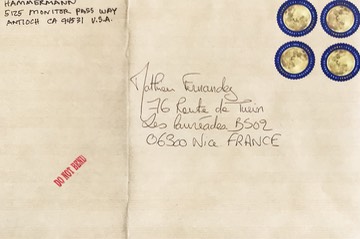 HAMMERMANN
5125 MONITOR PASS WAY
ANTIOCH CA 94531 U.S.A.
Mathieu Fernandez
76 Route de Turin
Les Lauréades BS02
06300 Nice FRANCE
DO NOT BEND